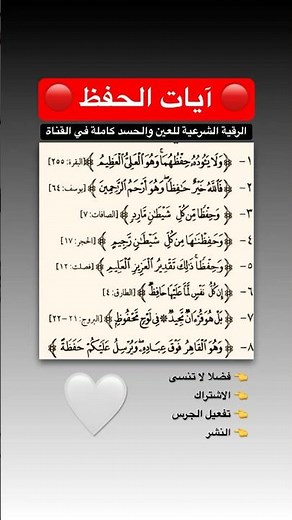 🔴 آيات الحفظ 🔴
الرقية الشرعية للعين والحسد كاملة في القناة
١- ﴿وَلَا يَـُٔودُهُۥ حِفْظُهُمَا ۚ وَهُوَ ٱلْعَلِىُّ ٱلْعَظِيمُ﴾ [البقرة: ٢٥٥]
٢- ﴿فَٱللَّهُ خَيْرٌ حَـٰفِظًا ۖ وَهُوَ أَرْحَمُ ٱلرَّٰحِمِينَ﴾ [يوسف: ٦٤]
٣- ﴿وَحِفْظًا مِّن كُلِّ شَيْطَـٰنٍ مَّارِدٍ﴾ [الصافات: ٧]
٤- ﴿وَحَفِظْنَـٰهَا مِن كُلِّ شَيْطَـٰنٍ رَّجِيمٍ﴾ [الحجر: ١٧]
٥- ﴿وَحِفْظًا ۚ ذَٰلِكَ تَقْدِيرُ ٱلْعَزِيزِ ٱلْعَلِيمِ﴾ [فصلت: ١٢]
٦- ﴿إِن كُلُّ نَفْسٍ لَّمَّا عَلَيْهَا حَافِظٌ﴾ [الطارق: ٤]
٧- ﴿بَلْ هُوَ قُرْءَانٌ مَّجِيدٌ ۝ فِى لَوْحٍ مَّحْفُوظٍۭ﴾ [البروج: ٢١-٢٢]
٨- ﴿وَهُوَ ٱلْقَاهِرُ فَوْقَ عِبَادِهِۦ ۖ وَيُرْسِلُ عَلَيْكُمْ حَفَظَةً﴾
👈 فضلا لا تنسى
👈 الاشتراك
👈 تفعيل الجرس
👈 النشر